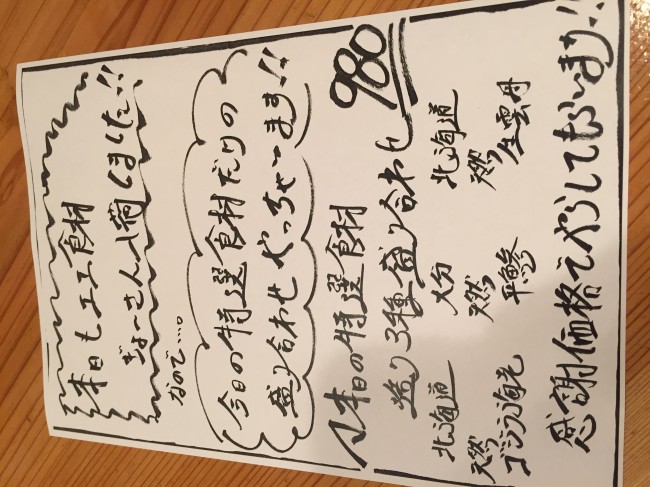 本日もエエ食材
ぎょーさん入荷しました!!
なので…。
今日の特選食材だけの
盛り合わせやっちゃいます!!
本日の特選食材
造り3種盛り合わせ 980
北海道 大分 北海道
天然 天然 天然
生雲丹 平鰺 ボタン海老
感謝価格でやらしてもらいます!!